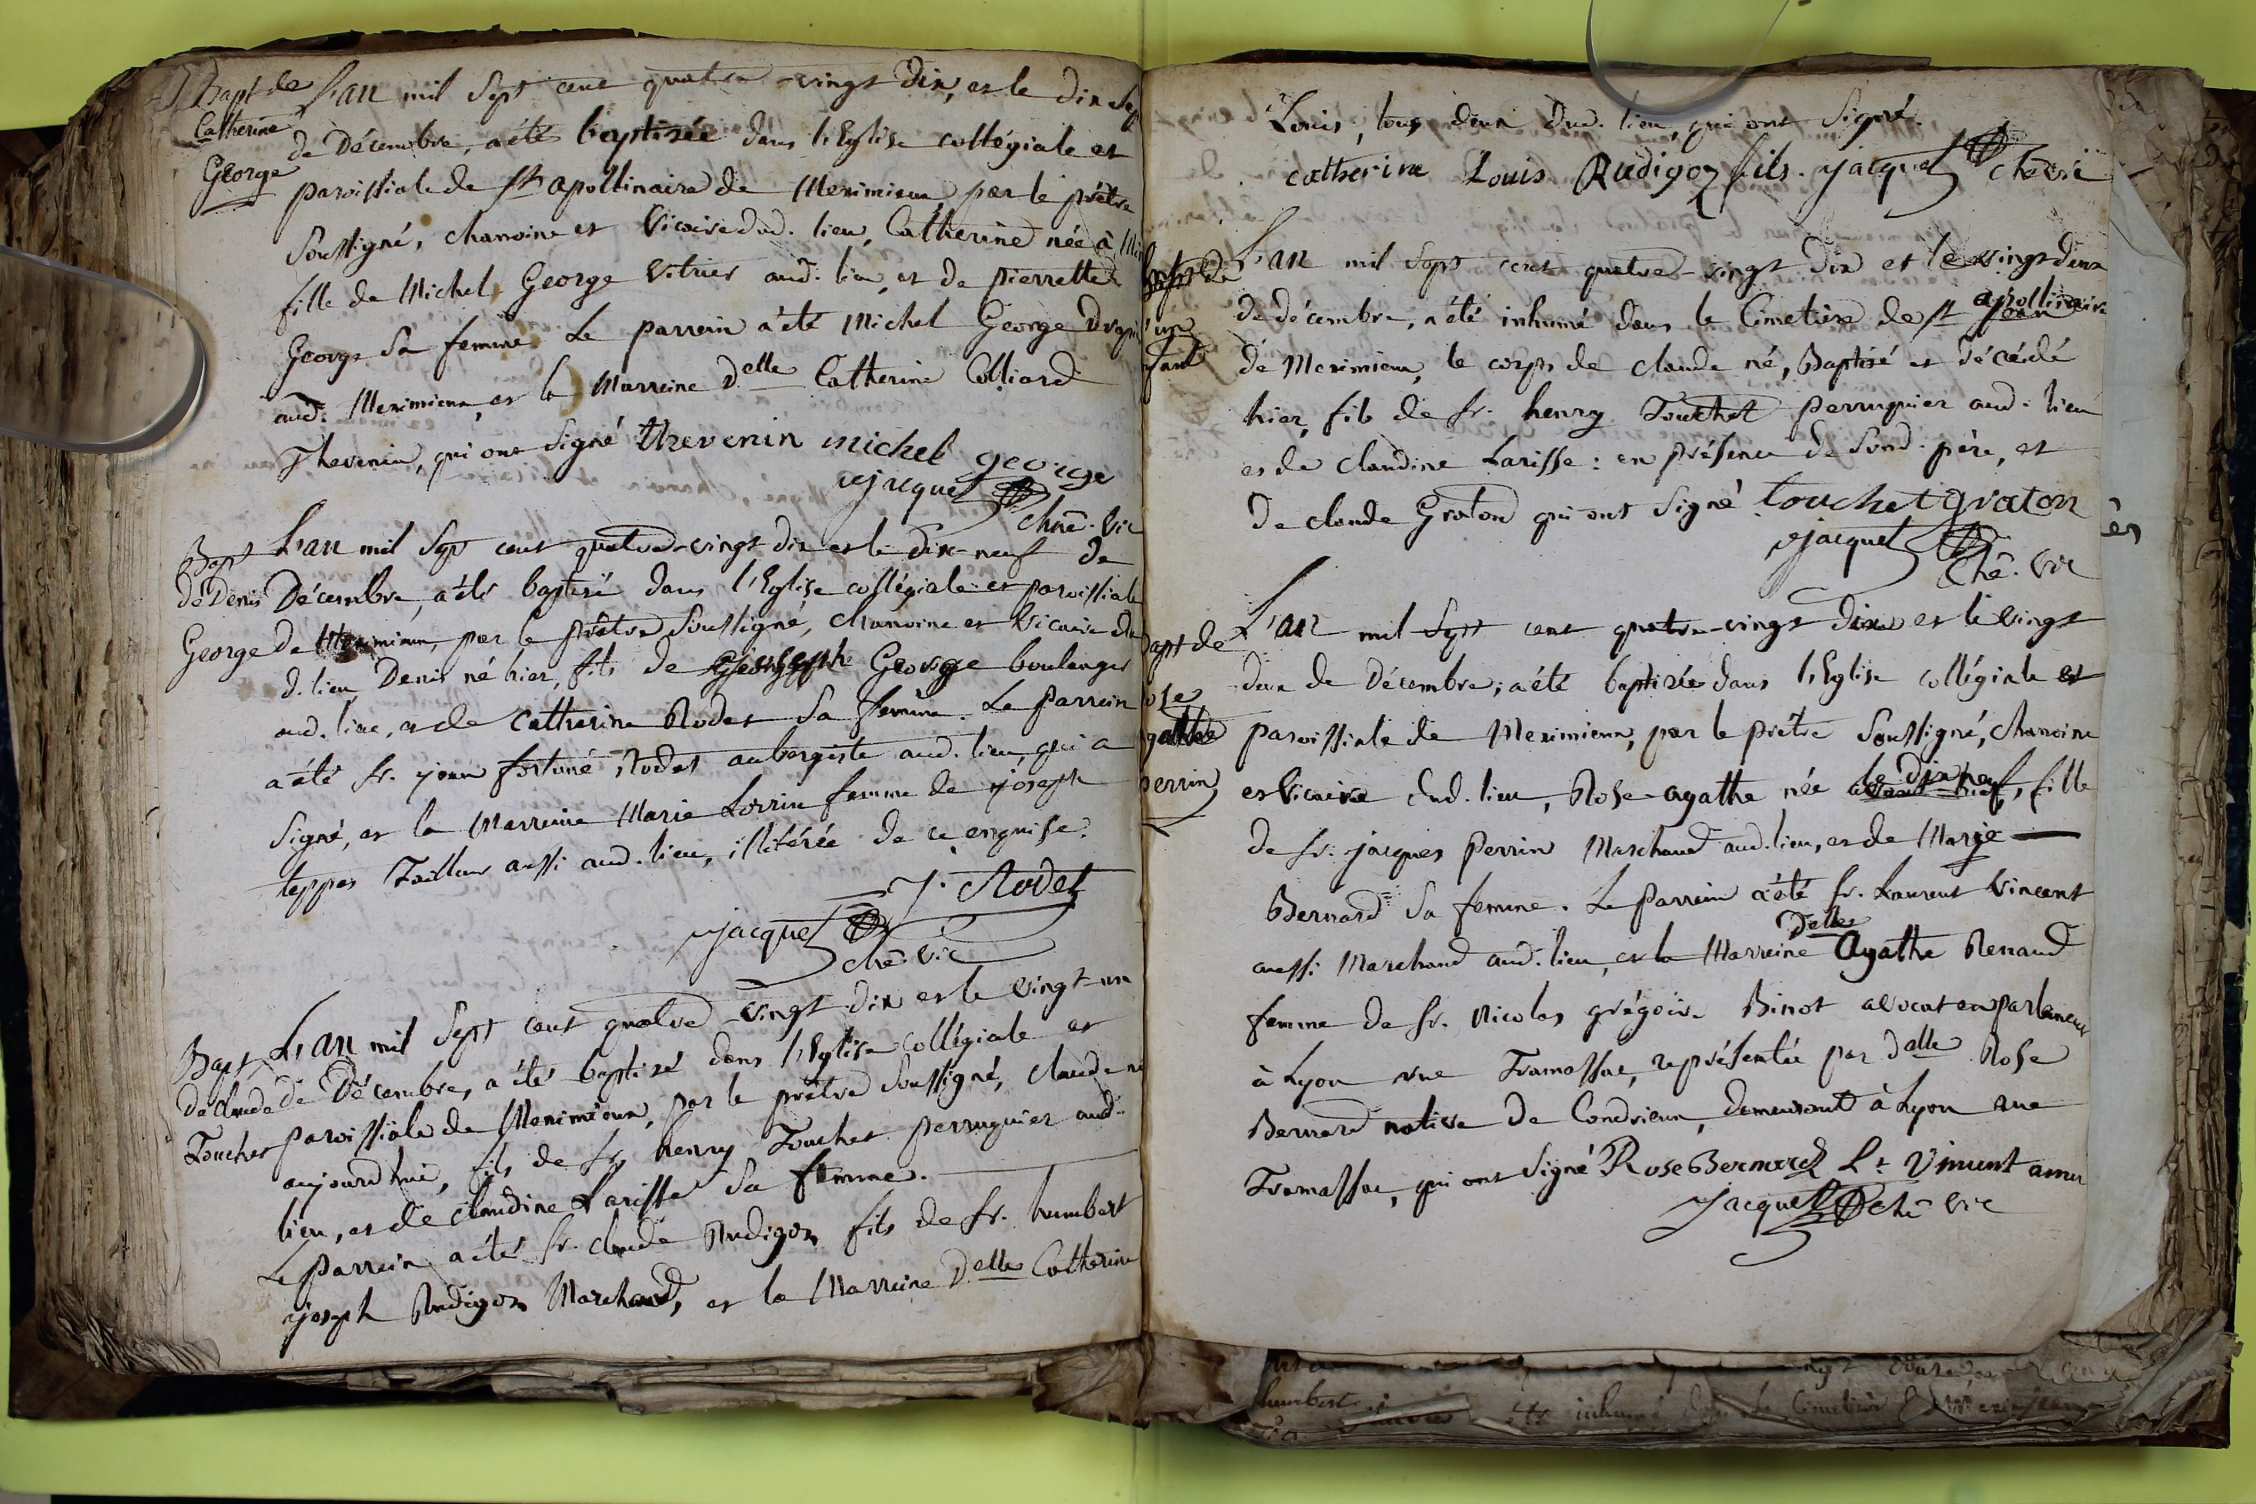 Bapt de
Catherine
George
L'an mil sept cent quatre-vingt dix, et le dix sept
de Décembre, a été baptisée dans l'Eglise collégiale et
paroissiale de St apollinaire de Meximieux, par le prêtre
soussigné, chanoine et Vicaire dud. lieu, Catherine née à
fille de Michel George Vitrier aud. lieu, et de pierrette
George sa femme. Le parrein a été Michel George
aud. Meximieux, et la Marreine Delle Catherine Colliard
Thevenin, qui ont signé thevenin michel george
jacquet
chne. Vic
Bapt
de Denis
George
L'an mil sept cent quatre-vingt dix et le dix-neuf de
Décembre, a été baptisé dans l'Eglise collégiale et paroissiale
de Meximieux, par le prêtre soussigné, chanoine et Vicaire du
d. lieu, Denis né hier, fils de joseph George boulanger
aud. lieu, et de Catherine Rodet sa femme. Le parrein
a été sr. jean fortuné Rodet aubergiste aud. lieu, qui a
signé, et la Marreine Marie Lorrin femme de joseph
teppes Tailleur aussi aud. lieu, illitérée de ce enquise.
J. Rodet
jacquet
chne. Vic
Bapt
de Claude
Touchet
L'an mil sept cent quatre-vingt dix et le vingt-un
de Décembre, a été baptisé dans l'Eglise collégiale et
paroissiale de Meximieux, par le prêtre soussigné, Claude né
aujourd'hui, fils de sr. henry Touchet perruquier aud.
lieu, et de Claudine Larisse sa femme.
Le parrein a été sr. claude Rudigoz fils de sr. humbert
joseph Rudigoz Marchand, et la Marreine Delle Catherine
Louis, tous deux dud. lieu, qui ont signé.
catherine Louis Rudigoz fils. jacquet chne vic
L'an mil sept cent quatre-vingt dix et le vingt deux
de décembre, a été inhumé dans le Cimetière de st apollinaire
de Meximieux, le corps de claude né, Baptisé et décédé
hier, fils de sr. henry Touchet perruquier aud. lieu
et de Claudine Larisse : en présence de sond. père, et
de claude Graton qui ont signé. touchet graton
jacquet
chne. Vic
Bapt de
Rose
agathe
perrin
L'an mil sept cent quatre-vingt dix et le vingt
deux de Décembre, a été baptisée dans l'Eglise collégiale et
paroissiale de Meximieux, par le prêtre soussigné, chanoine
et Vicaire dud. lieu, Rose-agathe née le dix neuf, fille
de sr. jacques perrin Marchand aud. lieu, et de Marie
Bernard sa femme. Le parrein a été sr. Laurent Vincent
aussi Marchand aud. lieu, et la Marreine Delle Agathe Renaud
femme de sr. Nicolas grégoire Binot avocat en parlement
à Lyon rue Tramassac, représentée par dalle Rose
Bernard native de Condrieux, demeurant à Lyon rue
Tramassac, qui ont signé Rose Bernard Lt Vincent
jacquet chne Vic